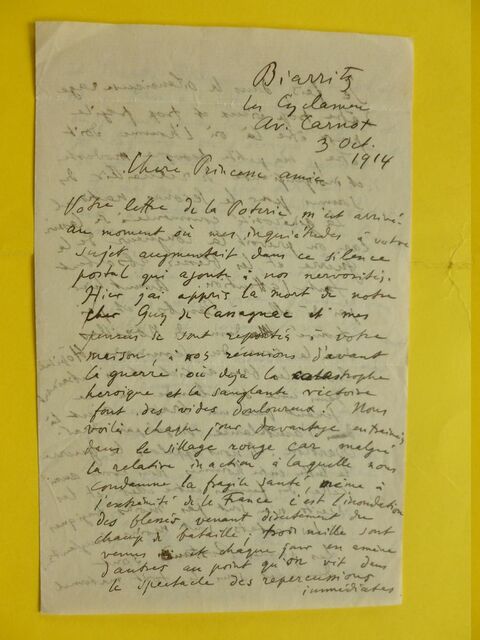 Biarritz
Les Cyclamen
Av. Carnot
3 Oct.
1914
Chère Princesse amie
Votre lettre de la Poterie m'est arrivée
au moment où mes inquiétudes à votre
sujet augmentait dans ce silence
postal qui ajoute à nos nervosités.
Hier j'ai appris la mort de notre
cher Guy de Cassagnac et mes
pensées se sont reportés à votre
maison à nos réunions d'avant
la guerre où déjà la catastrophe
heroique et la sanglante victoire
font des vides douloureux! Nous
voilà chaque jour davantage entrainés
dans le sillage rouge car malgré
la relative inaction à laquelle nous
condamne la fragile santé, même à
l'extrémité de la France c'est l'inondation
des blessés venant directement du
champ de bataille, trois mille sont
venus et chaque jour en amène
d'autres au point qu'on vit dans
le spectacle des repercussions
immédiates